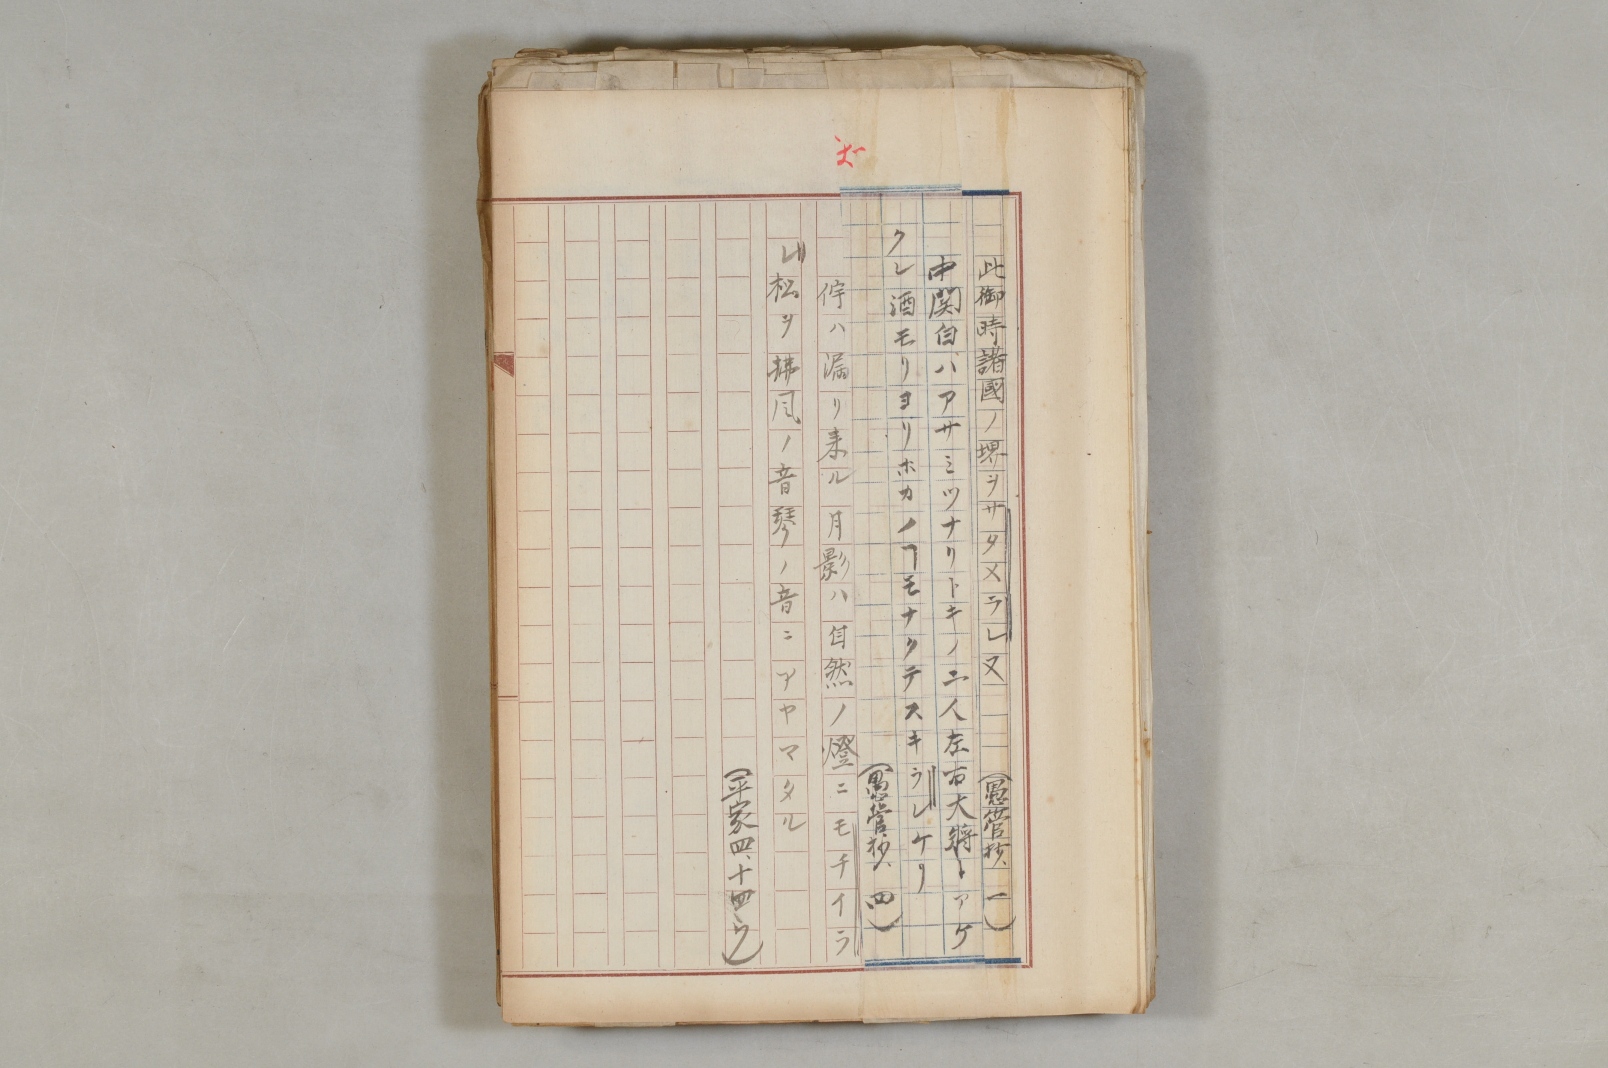 此御時諸國ノ堺ヲサタメラレ又
(愚菅抄、一)
中関白ハアサミツナリトキノ二人左右大将トアケ
クレ酒モリヨリホカノヿモナクテスキラレケリ
(愚菅抄、四)
佇ハ漏リ来ル月影ハ自然ノ燈ニモチイラ
レ松ヲ拂風ノ音琴ノ音ニアヤマタル
(平家四、十四ウ)